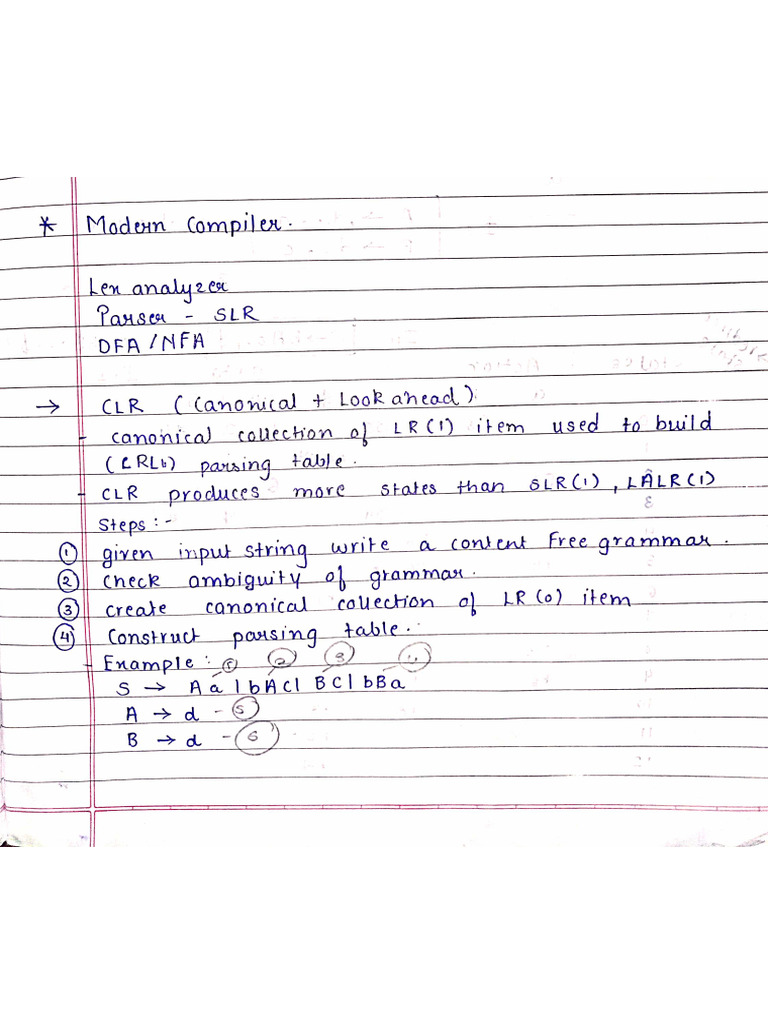 * Modern Compiler.
Lex analyzer
Parser - SLR
DFA / NFA
→ CLR (Canonical + Look ahead)
- canonical collection of LR(1) item used to build
parsing table.
- CLR produces more states than SLR(1), LALR(1)
Steps :-
① given input string write a context free grammar.
② check ambiguity of grammar.
③ create canonical collection of LR(0) item
④ Construct parsing table.
- Example : ① ② ③ ④
S → Aa | bAc | Bc | bBa
A → d - ⑤
B → d - ⑥